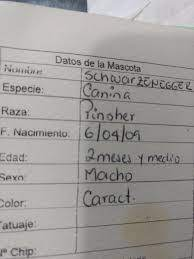 Datos de la Mascota
Nombre: SchwarzENEGGER
Especie: Canina
Raza: Pinsher
F. Nacimiento: 6/04/09
Edad: 2 meses y medio
Sexo: Macho
Color: Caract.
Tatuaje:
Nº Chip: